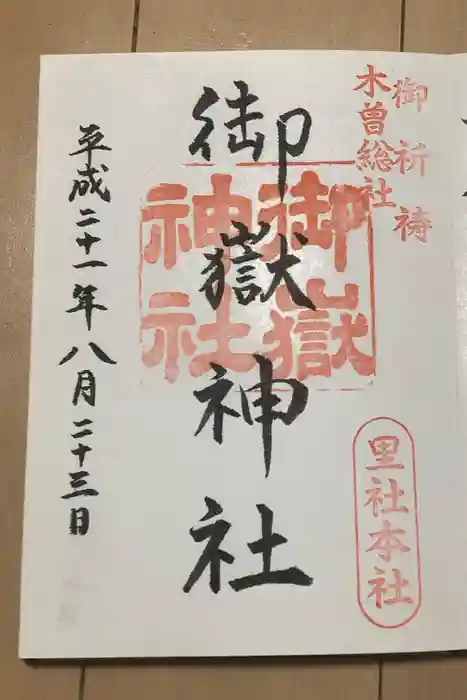 御祈祷
木曽総社
御嶽神社
御嶽
神社
里社本社
平成二十一年八月二十三日